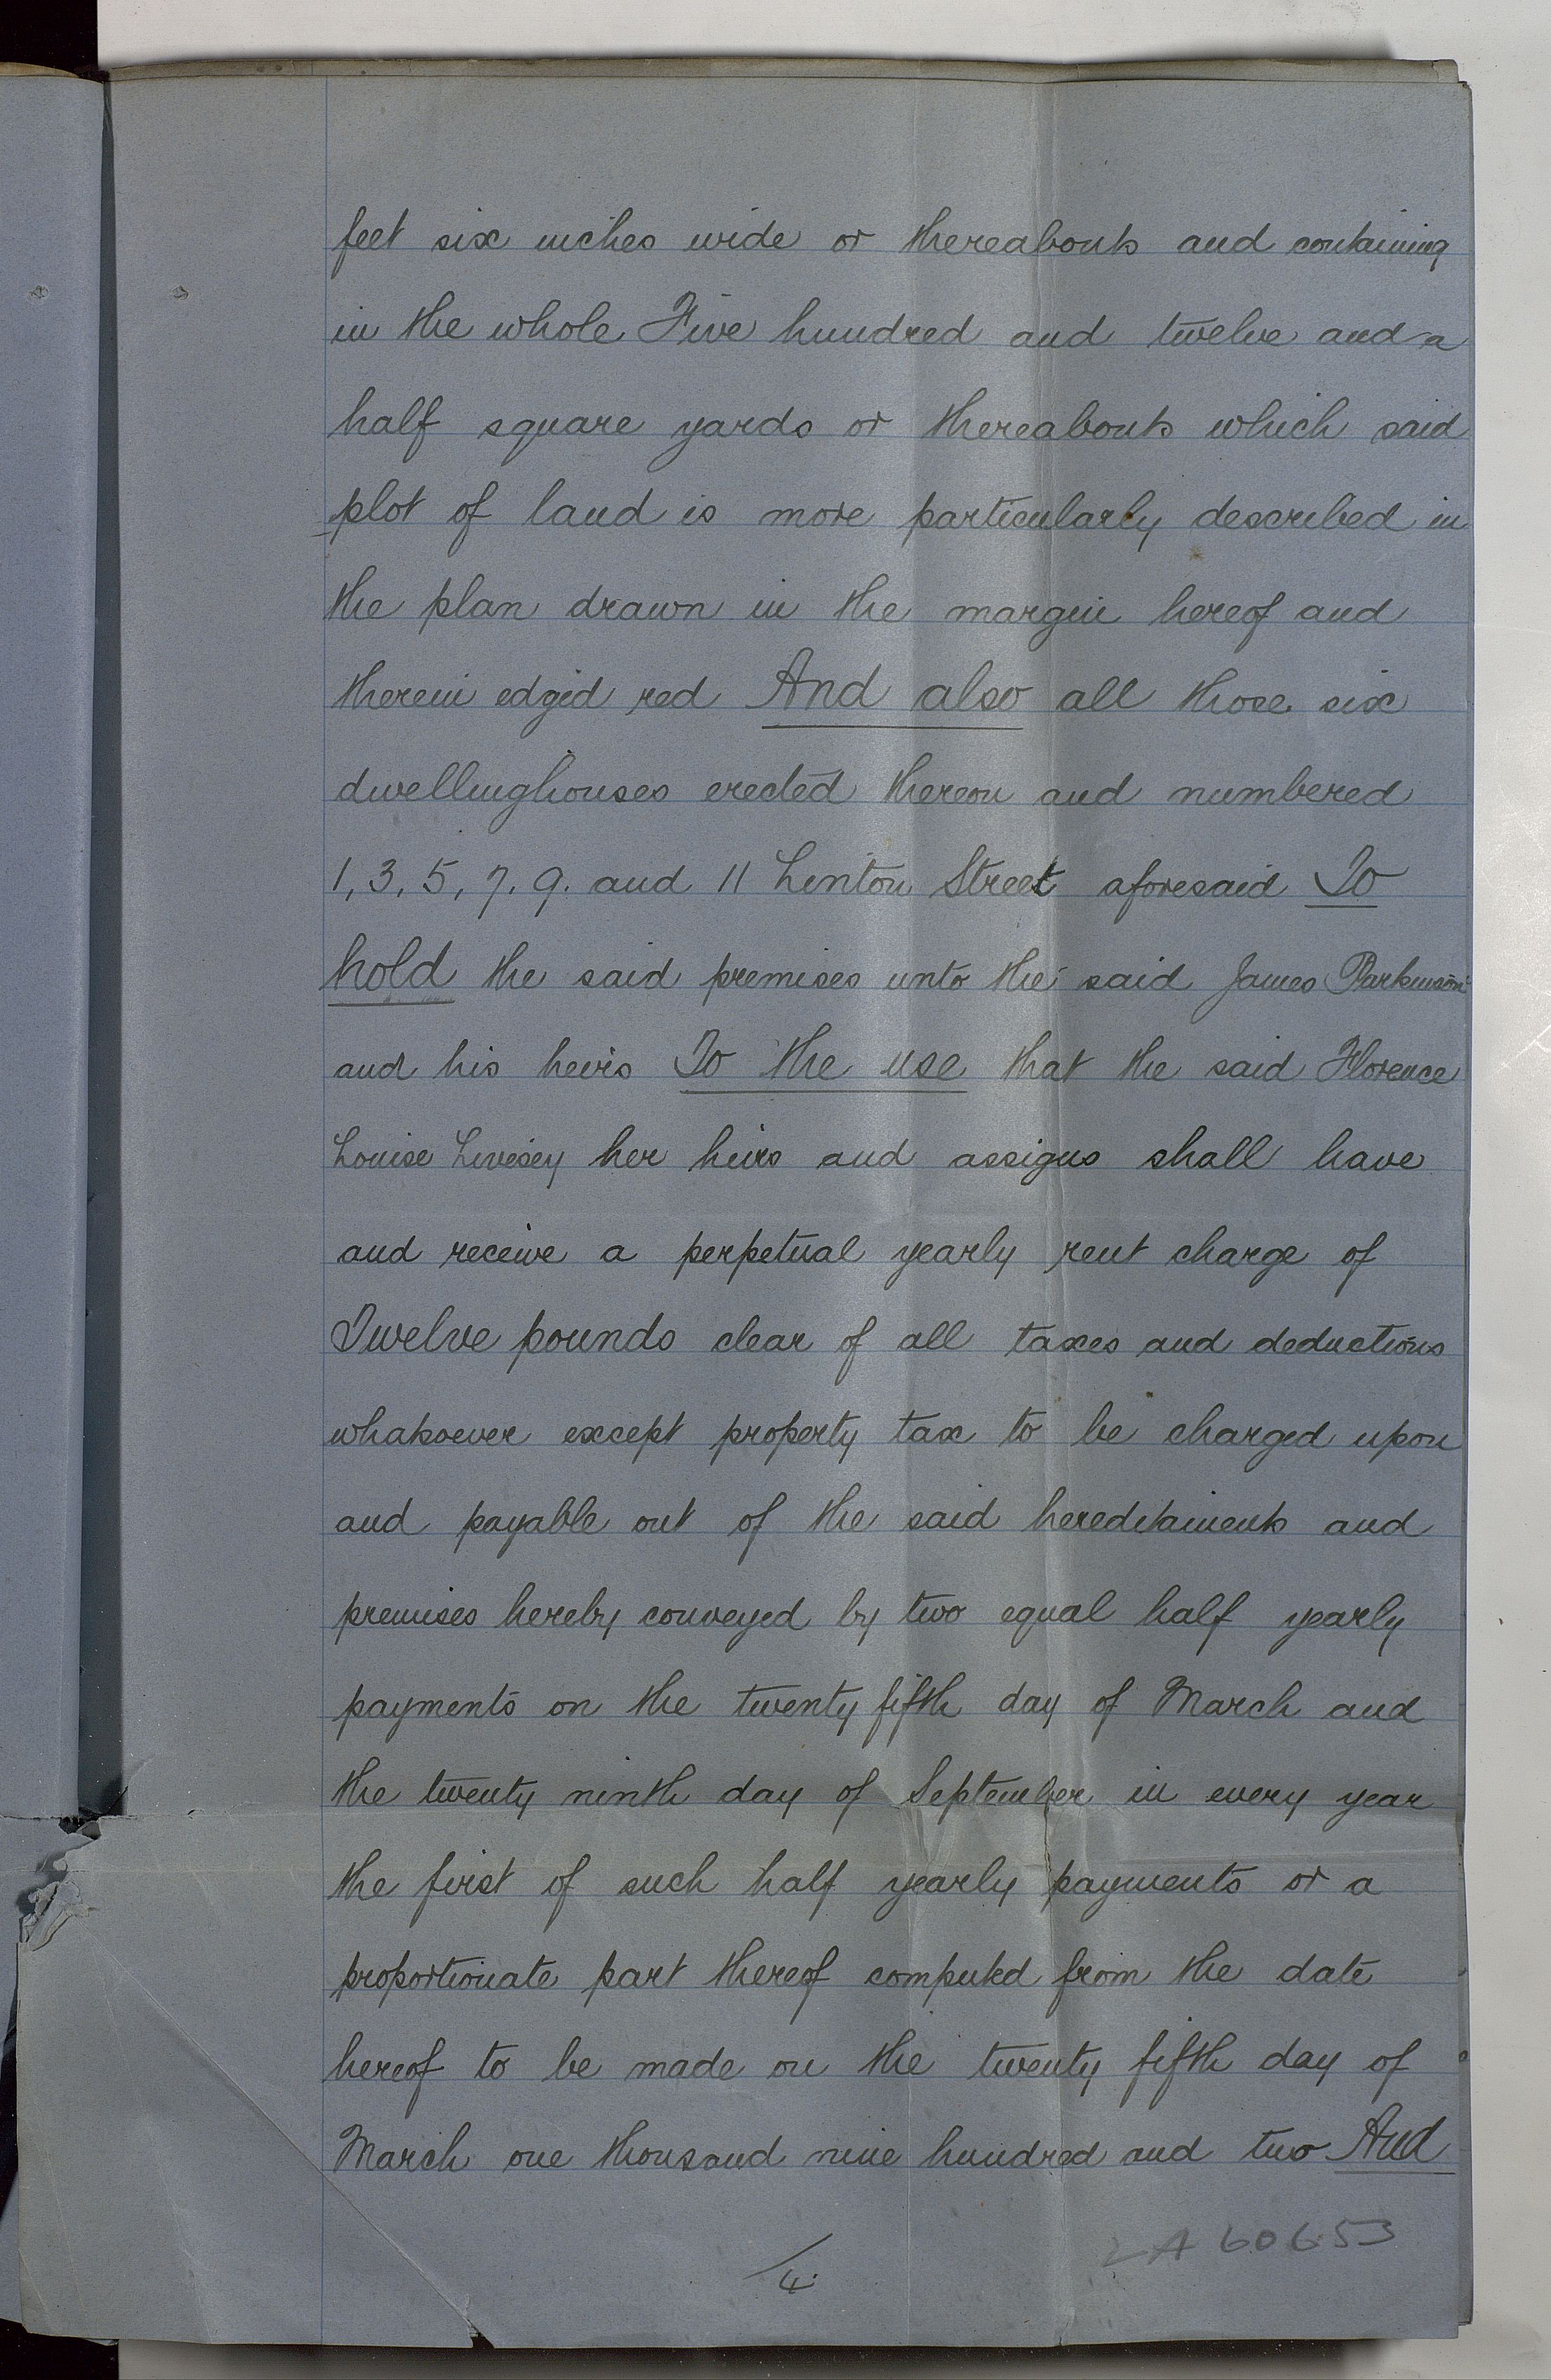 feet six inches wide or thereabouts and containing
in the whole Five hundred and twelve and a
half square yards or thereabouts which said
plot of land is more particularly described in
the plan drawn in the margin hereof and
therein edged red And also all those six
dwellinghouses erected thereon and numbered
1, 3, 5, 7. 9. and 11 Linton Street aforesaid To
hold the said premises unto the said James Parkinson
and his heirs To the use that the said Florence
Louise Livesey her heirs and assigns shall have
and receive a perpetual yearly rent charge of
Twelve pounds clear of all taxes and deductions
whatsoever except property tax to be charged upon
and payable out of the said hereditaments and
premises hereby conveyed by two equal half yearly
payments on the twenty fifth day of March and
the twenty ninth day of September in every year
the first of such half yearly payments or a
proportionate part thereof computed from the date
hereof to be made on the twenty fifth day of
March one thousand nine hundred and two And
4.
LA 60653